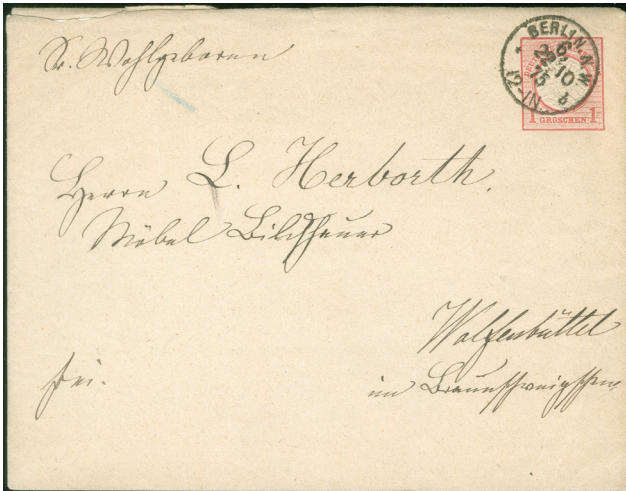 Sr. Wohlgeboren
BERLIN. N. W.
26 10
75
12-1N
1 GROSCHEN 1
Herrn L. Herborth.
Möbel Bildhauer
Wolfenbüttel
frei.
im Braunschweigschen